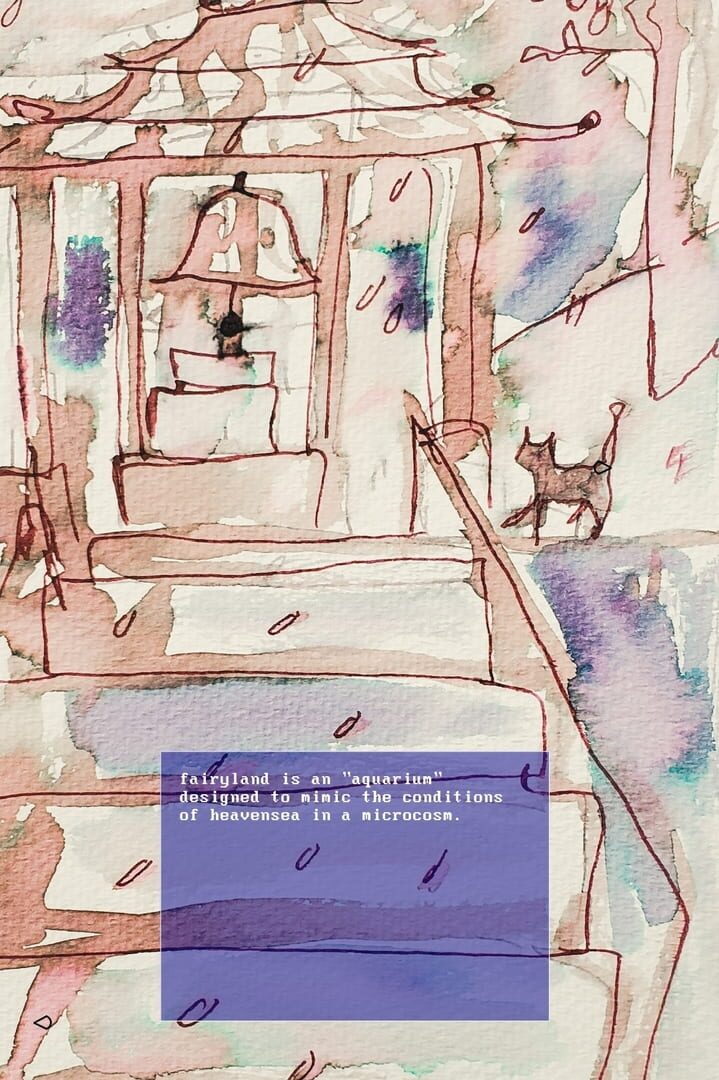 fairyland is an "aquarium"
designed to mimic the conditions
of heavensea in a microcosm.